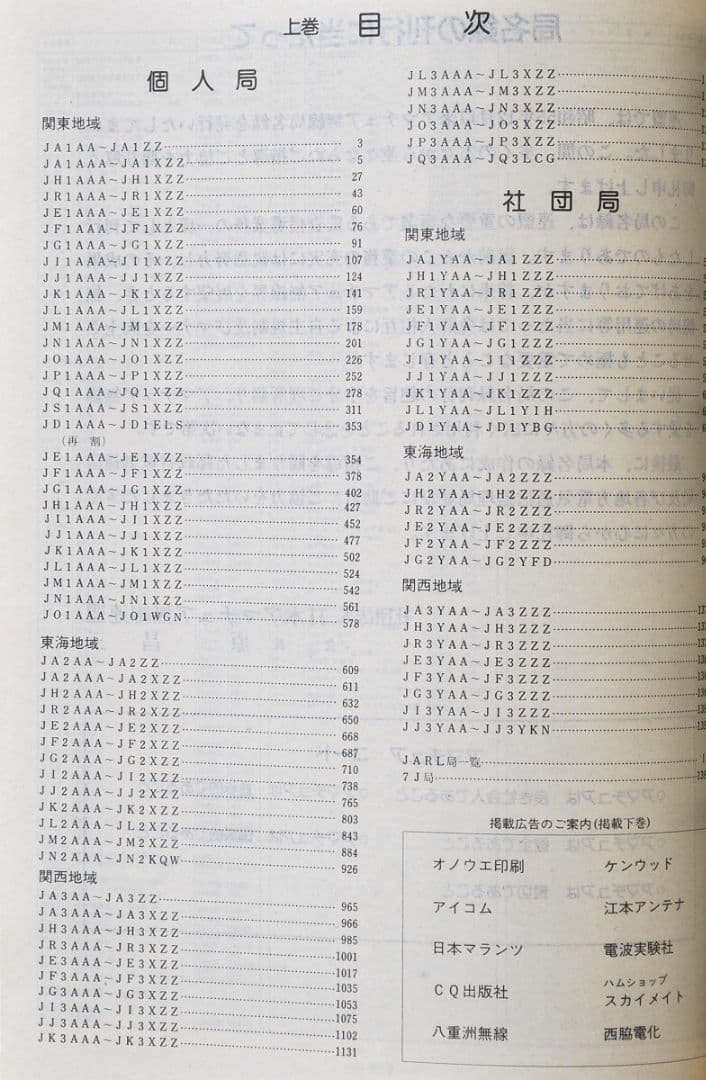 上巻 目次
個人局
関東地域
JA1AA～JA1ZZ 3
JA1AAA～JA1XZZ 5
JH1AAA～JH1XZZ 27
JR1AAA～JR1XZZ 43
JE1AAA～JE1XZZ 60
JF1AAA～JF1XZZ 76
JG1AAA～JG1XZZ 91
JI1AAA～JI1XZZ 107
JJ1AAA～JJ1XZZ 124
JK1AAA～JK1XZZ 141
JL1AAA～JL1XZZ 159
JM1AAA～JM1XZZ 178
JN1AAA～JN1XZZ 201
JO1AAA～JO1XZZ 226
JP1AAA～JP1XZZ 252
JQ1AAA～JQ1XZZ 278
JS1AAA～JS1XZZ 311
JD1AAA～JD1ELS 353
(再割)
JE1AAA～JE1XZZ 354
JF1AAA～JF1XZZ 378
JG1AAA～JG1XZZ 402
JH1AAA～JH1XZZ 427
JI1AAA～JI1XZZ 452
JJ1AAA～JJ1XZZ 477
JK1AAA～JK1XZZ 502
JL1AAA～JL1XZZ 524
JM1AAA～JM1XZZ 542
JN1AAA～JN1XZZ 561
JO1AAA～JO1WGN 578
東海地域
JA2AA～JA2ZZ 609
JA2AAA～JA2XZZ 611
JH2AAA～JH2XZZ 632
JR2AAA～JR2XZZ 650
JE2AAA～JE2XZZ 668
JF2AAA～JF2XZZ 687
JG2AAA～JG2XZZ 710
JI2AAA～JI2XZZ 738
JJ2AAA～JJ2XZZ 765
JK2AAA～JK2XZZ 803
JL2AAA～JL2XZZ 843
JM2AAA～JM2XZZ 884
JN2AAA～JN2KQW 926
関西地域
JA3AA～JA3ZZ 965
JA3AAA～JA3XZZ 966
JH3AAA～JH3XZZ 985
JR3AAA～JR3XZZ 1001
JE3AAA～JE3XZZ 1017
JF3AAA～JF3XZZ 1035
JG3AAA～JG3XZZ 1053
JI3AAA～JI3XZZ 1075
JJ3AAA～JJ3XZZ 1102
JK3AAA～JK3XZZ 1131
JL3AAA～JL3XZZ
JM3AAA～JM3XZZ
JN3AAA～JN3XZZ
JO3AAA～JO3XZZ
JP3AAA～JP3XZZ
JQ3AAA～JQ3LCG
社団局
関東地域
JA1YAA～JA1ZZZ
JH1YAA～JH1ZZZ
JR1YAA～JR1ZZZ
JE1YAA～JE1ZZZ
JF1YAA～JF1ZZZ
JG1YAA～JG1ZZZ
JI1YAA～JI1ZZZ
JJ1YAA～JJ1ZZZ
JK1YAA～JK1ZZZ
JL1YAA～JL1YIH
JD1YAA～JD1YBG
東海地域
JA2YAA～JA2ZZZ
JH2YAA～JH2ZZZ
JR2YAA～JR2ZZZ
JE2YAA～JE2ZZZ
JF2YAA～JF2ZZZ
JG2YAA～JG2YFD
関西地域
JA3YAA～JA3ZZZ
JH3YAA～JH3ZZZ
JR3YAA～JR3ZZZ
JE3YAA～JE3ZZZ
JF3YAA～JF3ZZZ
JG3YAA～JG3ZZZ
JI3YAA～JI3ZZZ
JJ3YAA～JJ3YKN
JARL局一覧
7J局
掲載広告のご案内(掲載下巻)
オノウエ印刷 ケンウッド
アイコム 江本アンテナ
日本マランツ 電波実験社
CQ出版社 ハムショップ スカイメイト
八重洲無線 西脇電化